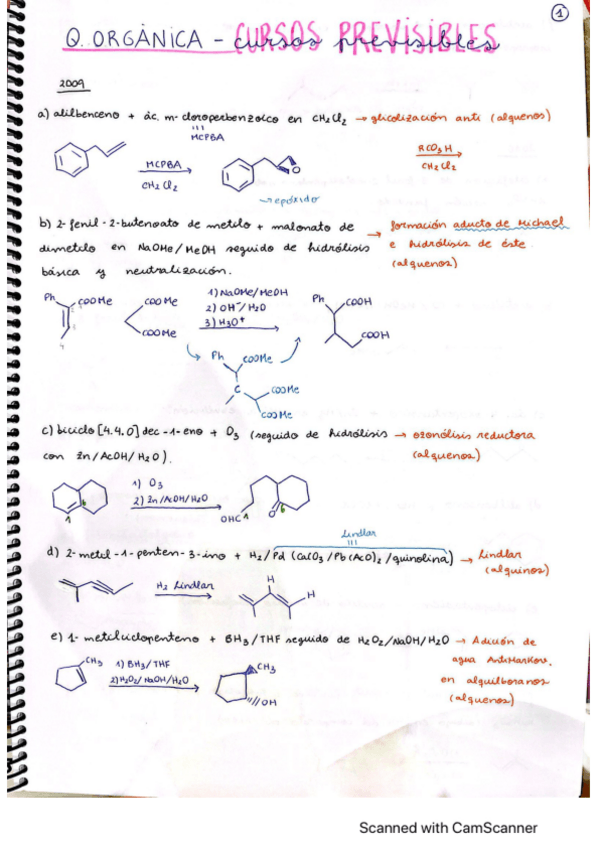 1
Q. ORGÁNICA - CURSOS PREVISIBLES
cursos previsibles
2009
a) alilbenceno + ác. m-cloroperbenzoico en CH2Cl2 → glicolización anti (alquenos)
MCPBA
MCPBA
CH2Cl2
O
RCO3H
CH2Cl2
→ epóxido
b) 2-fenil-2-butenoato de metilo + malonato de → formación aducto de Michael
dimetilo en NaOMe/MeOH seguido de hidrólisis e hidrólisis de éste
básica y neutralización. (alquenos)
Ph COOMe COOMe
COOMe
1) NaOMe/MeOH
2) OH-/H2O
3) H3O+
Ph COOH
COOH
Ph COOMe
C COOMe
COOMe
c) biciclo [4.4.0] dec-1-eno + O3 (seguido de hidrólisis → ozonólisis reductora
con Zn/AcOH/H2O). (alquenos)
1) O3
2) Zn/AcOH/H2O
1 6
OHC 1 O 6
Lindlar
d) 2-metil-1-penten-3-ino + H2/Pd (CaCO3/Pb(AcO)2/quinolina) → Lindlar
(alquinos)
H2 Lindlar
H
H
e) 1-metilciclopenteno + BH3/THF seguido de H2O2/NaOH/H2O → Adición de
agua AntiMarkov.
en alquilboranos
(alquenos)
CH3
1) BH3/THF
2) H2O2/NaOH/H2O
CH3
OH
Scanned with CamScanner